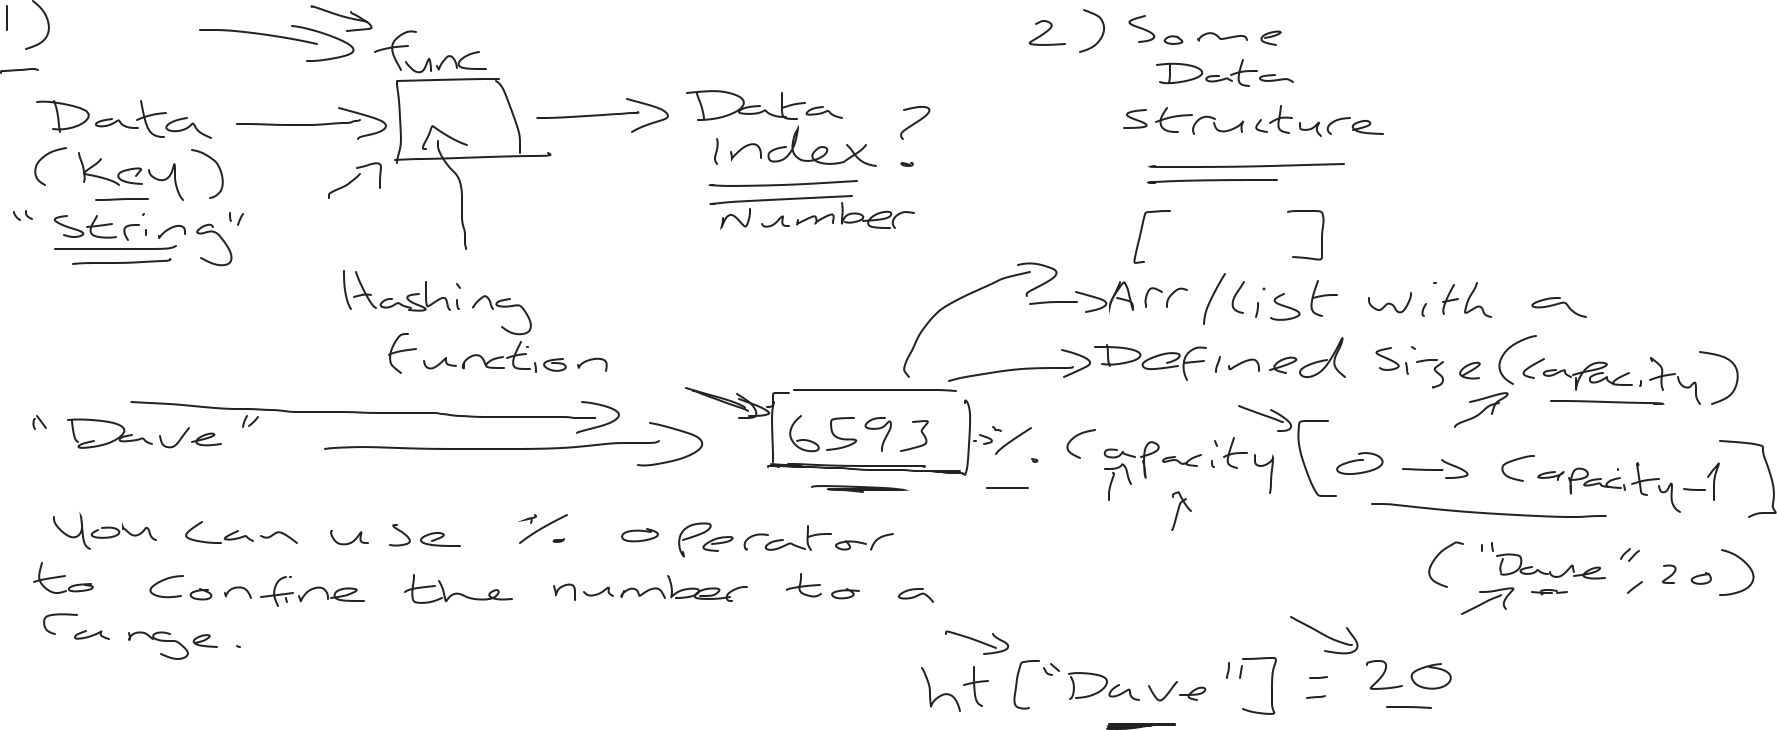 1)
func
Data
(Key)
"String"
Data
Index ?
Number
Hashing
Function
2) Some
Data
Structure
[ ]
Arr/List with a
Defined Size (Capacity)
"Dave"
6593 % Capacity [0 → Capacity-1]
You can use % operator
to confine the number to a
range.
("Dave", 20)
ht["Dave"] = 20